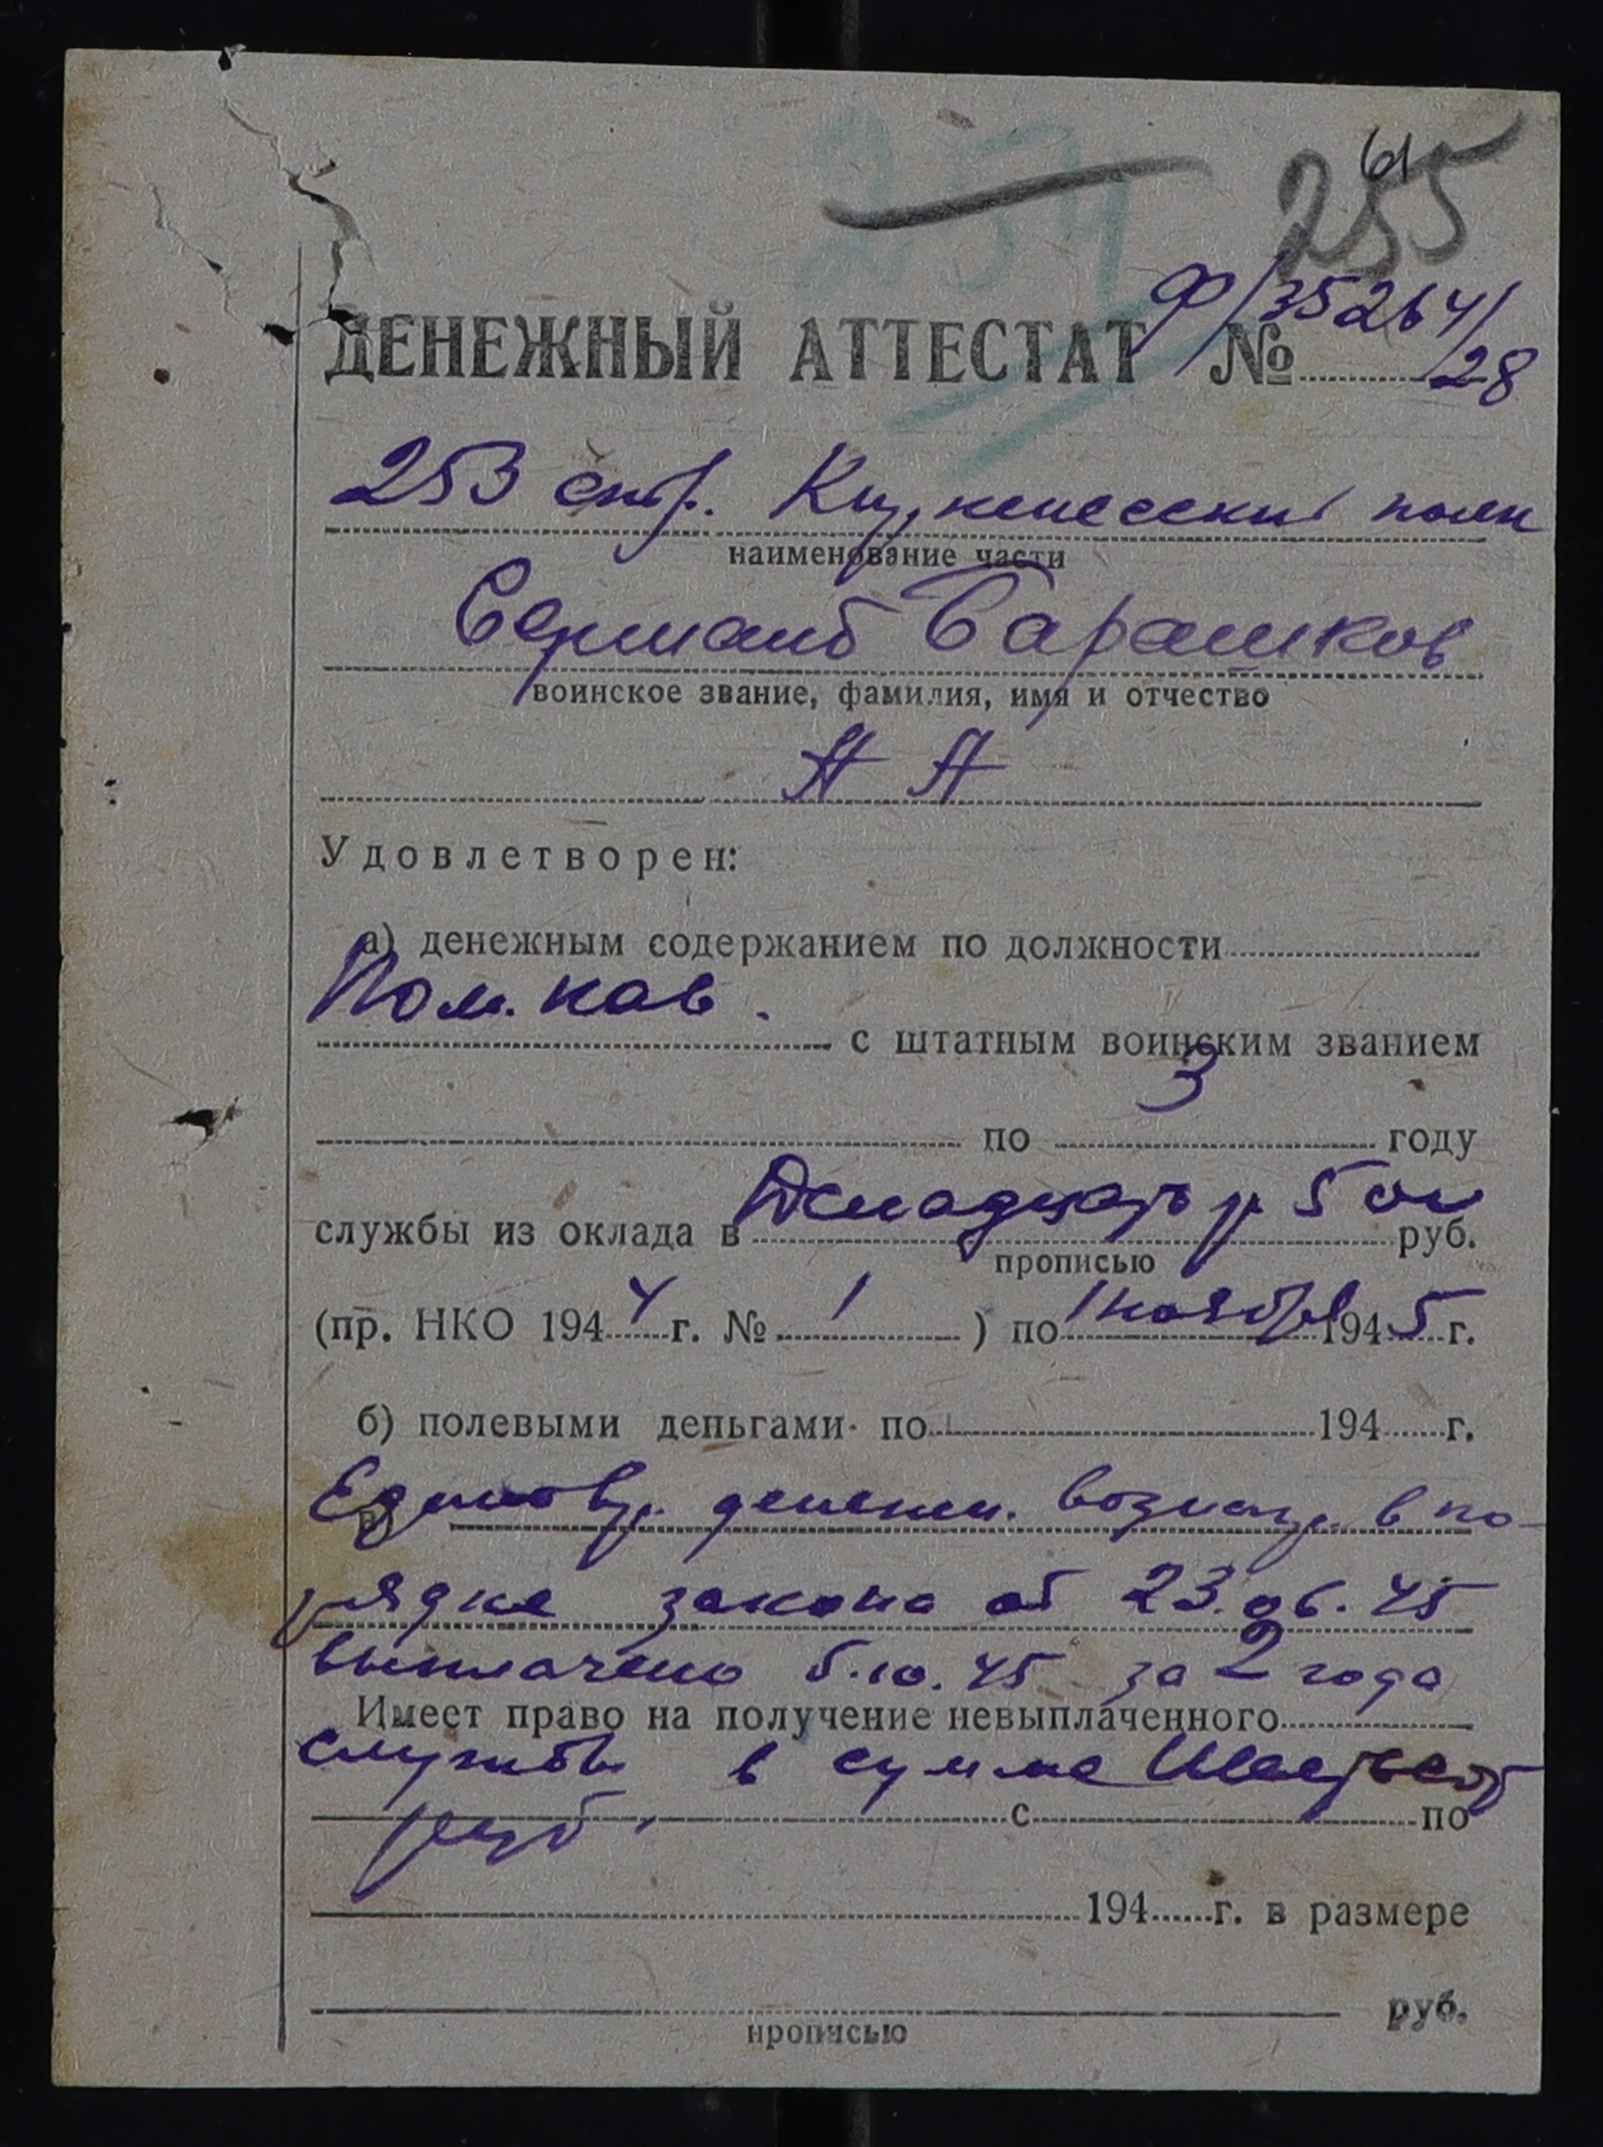 254
61
255
Ф/35264/
ДЕНЕЖНЫЙ АТТЕСТАТ № 28
253 стр. полк
наименование части
Сержант Барашков
воинское звание, фамилия, имя и отчество
А А
Удовлетворен:
а) денежным содержанием по должности
Пом. ков.
с штатным воинским званием
3
по году
службы из оклада в р 50 к руб.
прописью
(пр. НКО 1944 г. № 1 ) по 1 ноября 1945 г.
б) полевыми деньгами по 194 г.
в) Единовр. денежн. вознагр. в по-
рядке закона от 23.06.45
выплачено 5.10.45 за 2 года
Имеет право на получение невыплаченного
службы в сумме Шестьсот
с по
руб.
194 г. в размере
руб.
прописью